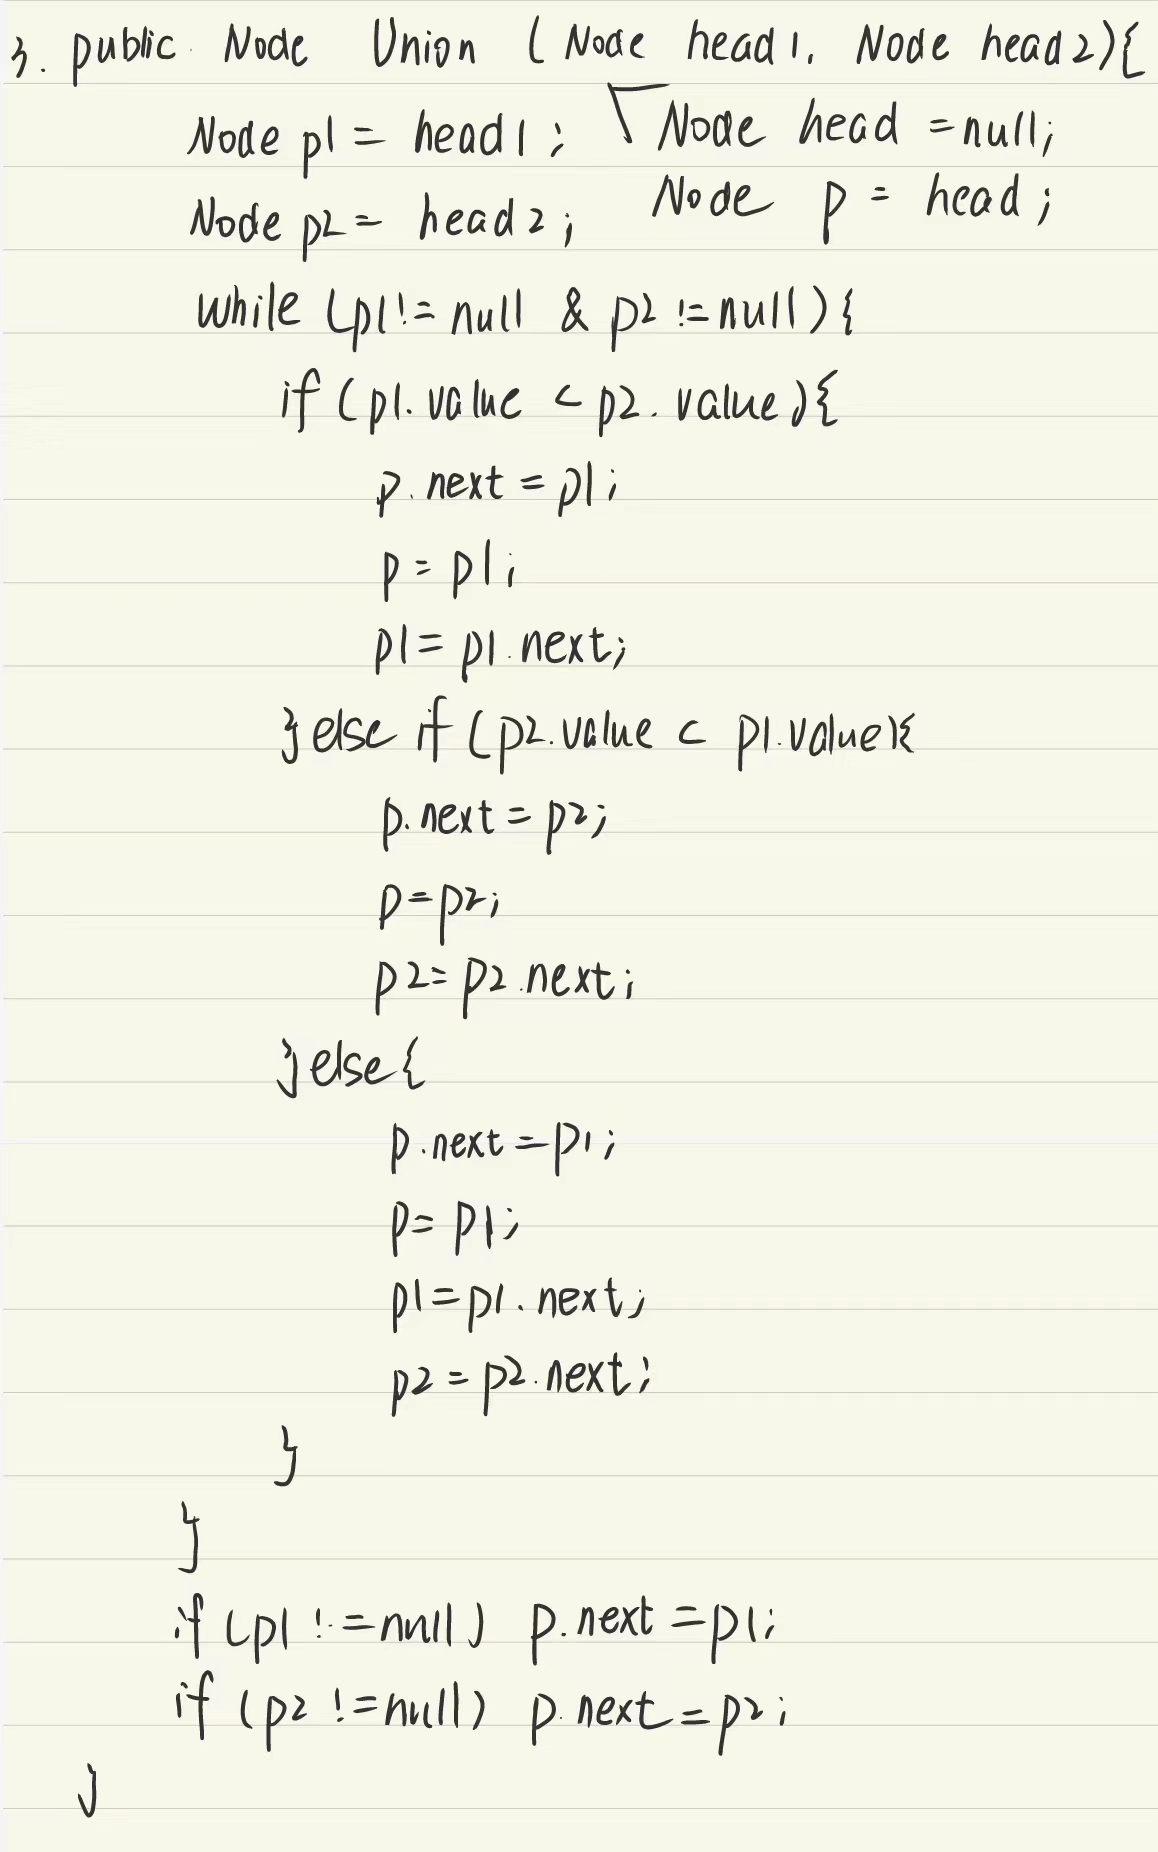 3. public Node Union (Node head1, Node head2){
Node p1 = head1; Node head = null;
Node p2 = head2; Node p = head;
while (p1 != null & p2 != null){
if (p1.value < p2.value){
p.next = p1;
p = p1;
p1 = p1.next;
}else if (p2.value < p1.value){
p.next = p2;
p = p2;
p2 = p2.next;
}else{
p.next = p1;
p = p1;
p1 = p1.next;
p2 = p2.next;
}
}
if (p1 != null) p.next = p1;
if (p2 != null) p.next = p2;
}